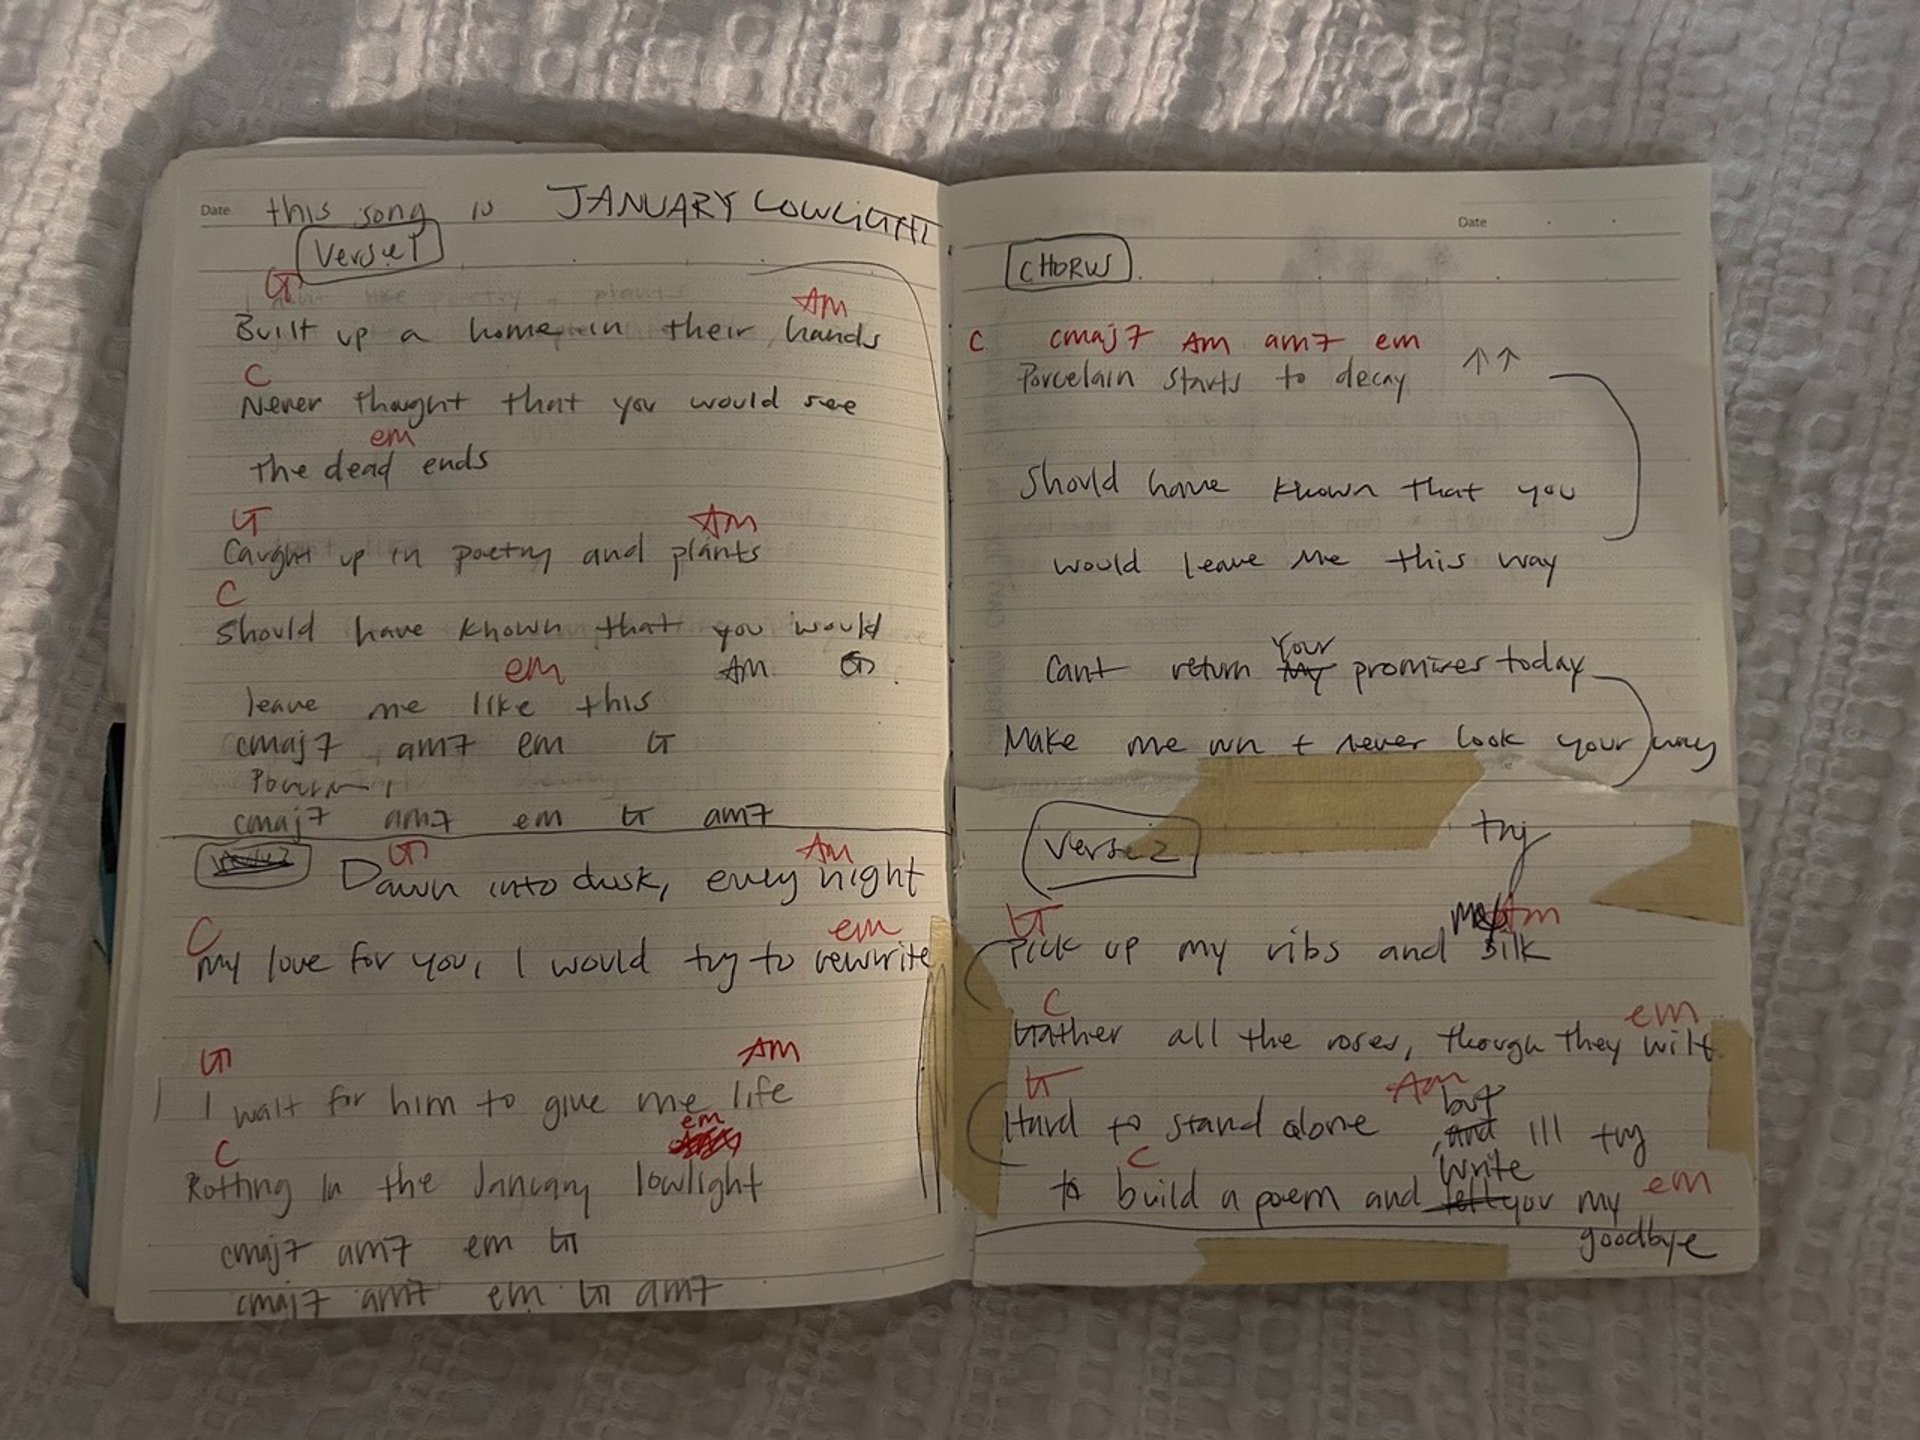 Date this song is JANUARY LOWLIGHT
Verse 1
G Am
Built up a home in their hands
C
Never thought that you would see
em
the dead ends
G Am
Caught up in poetry and plants
C
Should have known that you would
em Am G
leave me like this
cmaj7 am7 em G
cmaj7 am7 em G am7
G Am
Dawn into dusk, every night
C em
My love for you, I would try to rewrite
G Am
I wait for him to give me life
em
C
Rotting in the January lowlight
cmaj7 am7 em G
cmaj7 am7 em G am7
Date
CHORUS
C cmaj7 Am am7 em
Porcelain starts to decay ↑↑
Should have known that you
would leave me this way
Your
Cant return My promises today
Make me wn + never look your way
Verse 2
try
G my Am
Pick up my ribs and silk
C em
Gather all the roses, though they wilt
G Am
but
Hard to stand alone, and Ill try
C write em
to build a poem and tell you my
goodbye